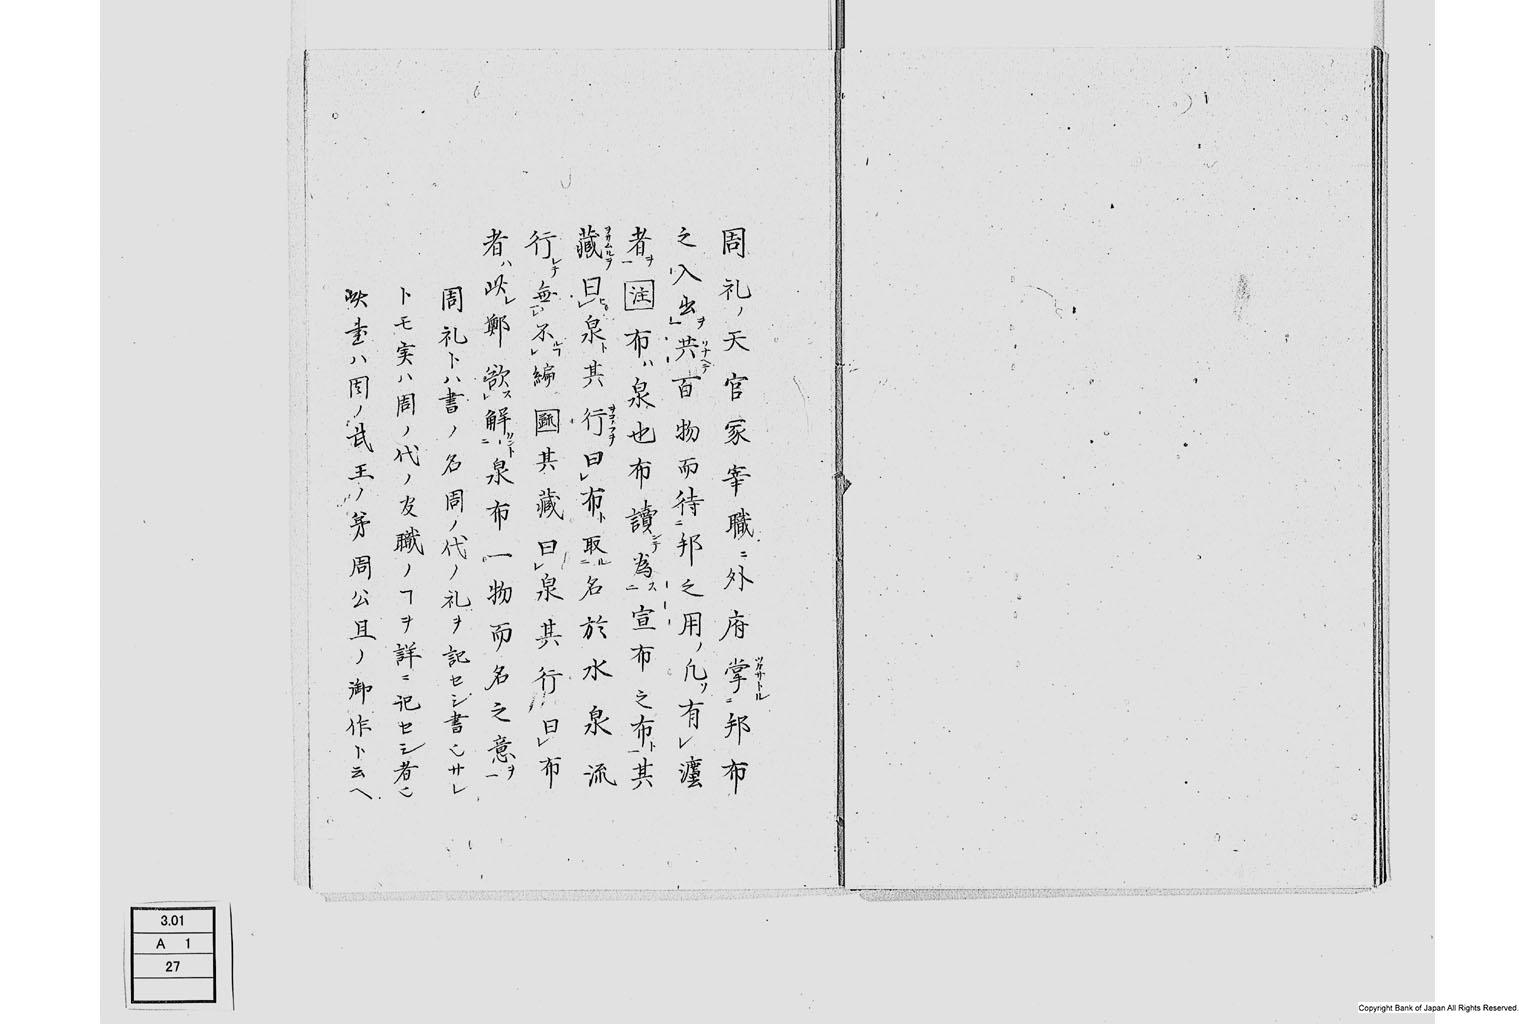 周礼ノ天官冢宰職ニ外府掌ツカサトルニ邦布
之入出ヲ一共ソナヘテ百物而待ニ邦之用ノ凡ソ有レ灋
者ヲ一注布ハ泉也布讀シテ為スニ宣布之布ト一其
藏ヲサムルヲ曰レ泉ト其行ヲコナフヲ曰レ布ト取ルニ名於水泉流
行レテ無レ不レ徧 其藏曰レ泉其行曰レ布
者ハ此レ鄭欲スレ解ントニ泉布一物而名之意ヲ一
周礼トハ書ノ名周ノ代ノ礼ヲ記セシ書也サレ
トモ実ハ周ノ代ノ官職ノヿヲ詳ニ記セシ者也
此書ハ周ノ武王ノ弟周公旦ノ御作ト云ヘ
3.01
A 1
27
Copyright Bank of Japan All Rights Reserved.